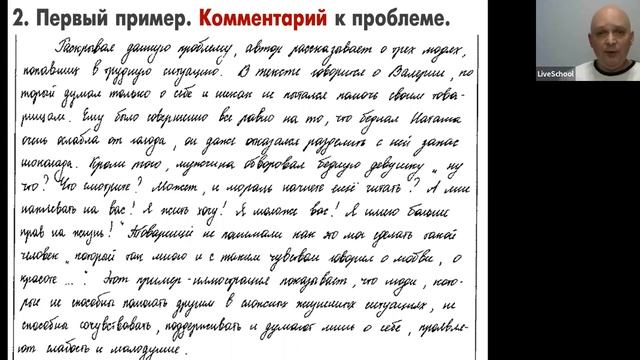 2. Первый пример. Комментарий к проблеме.
LiveSchool
Раскрывая данную проблему, автор рассказывает о трех людях,
попавших в трудную ситуацию. В тексте говорится о Валерии, ко
торый думал только о себе и никак не пытался помочь своим това-
рищам. Ему было совершенно все равно на то, что бедная Наташа
очень ослабла от голода, он даже отказался разделить с ней запас
шоколада. Кроме того, мужчина обворовал бедную девушку „ну
что? Что смотрите? Может, и мораль начнете ещё читать? А мне
наплевать на вас! Я жить хочу! Я моложе вас! Я имею больше
прав на жизнь!" Товарищи не понимали как это мог сделать такой
человек „который так много и с таким чувством говорил о любви, о
красоте ..." Этот пример-иллюстрация показывает, что люди, кото-
рые не способны помогать другим в сложных жизненных ситуациях, не
способны сочувствовать, поддерживать и думают лишь о себе, проявля-
ют слабость и малодушие.